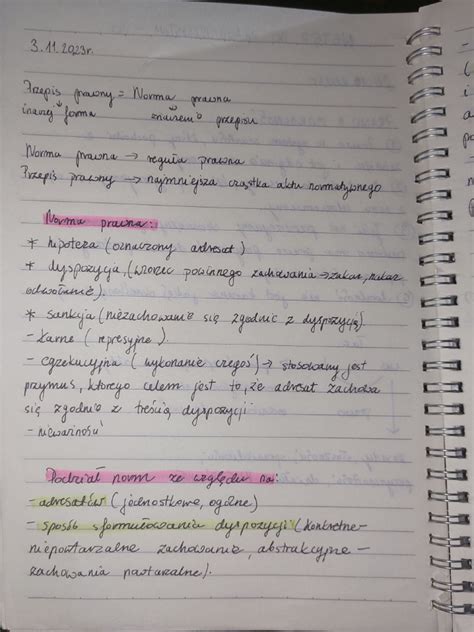 3.11.2023r.
Przepis prawny = Norma prawna
inaczej forma znaczenie przepisu
Norma prawna → reguła prawna
Przepis prawny → najmniejsza cząstka aktu normatywnego
Norma prawna:
* hipoteza (oznaczony adresat)
* dyspozycja, (wzorzec powinnego zachowania → zakaz, nakaz
* sankcja (niezachowanie się zgodnie z dyspozycją)
- karne (represyjne)
- egzekucyjna (wykonanie czegoś) → stosowany jest
przymus, którego celem jest to, że adresat zachowa
się zgodnie z treścią dyspozycji
- nieważność
Podział norm ze względu na:
- adresatów (jednostkowe, ogólne)
- sposób sformułowania dyspozycji (konkretne-
niepowtarzalne zachowanie, abstrakcyjne -
zachowania powtarzalne).